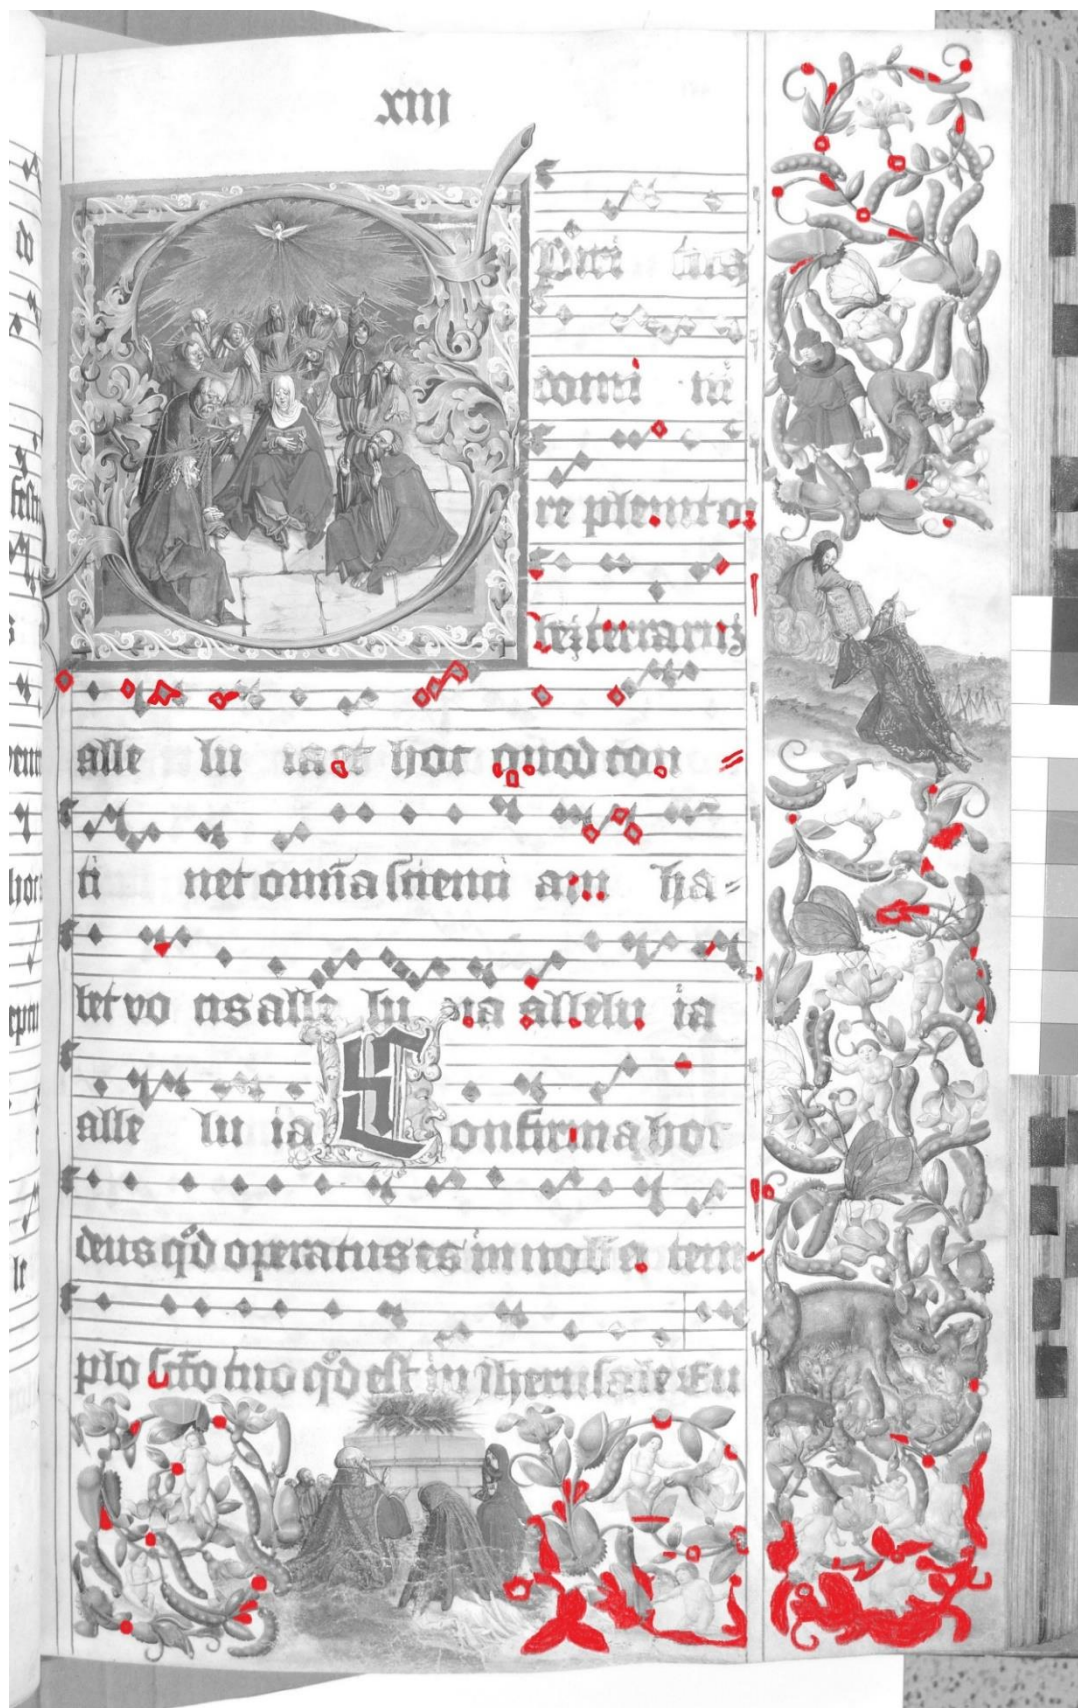 xiij
Spiri tus
domi ni
re pleuit or
bez terraruz
alle lu ia et hoc quod con
ti net omīa scienti am ha-
bet vo cis alle lu ia allelu ia
alle lu ia Confirma hoc
deus qd operatus es in nobis a tem
plo scto tuo qd est in iherusalē Eu